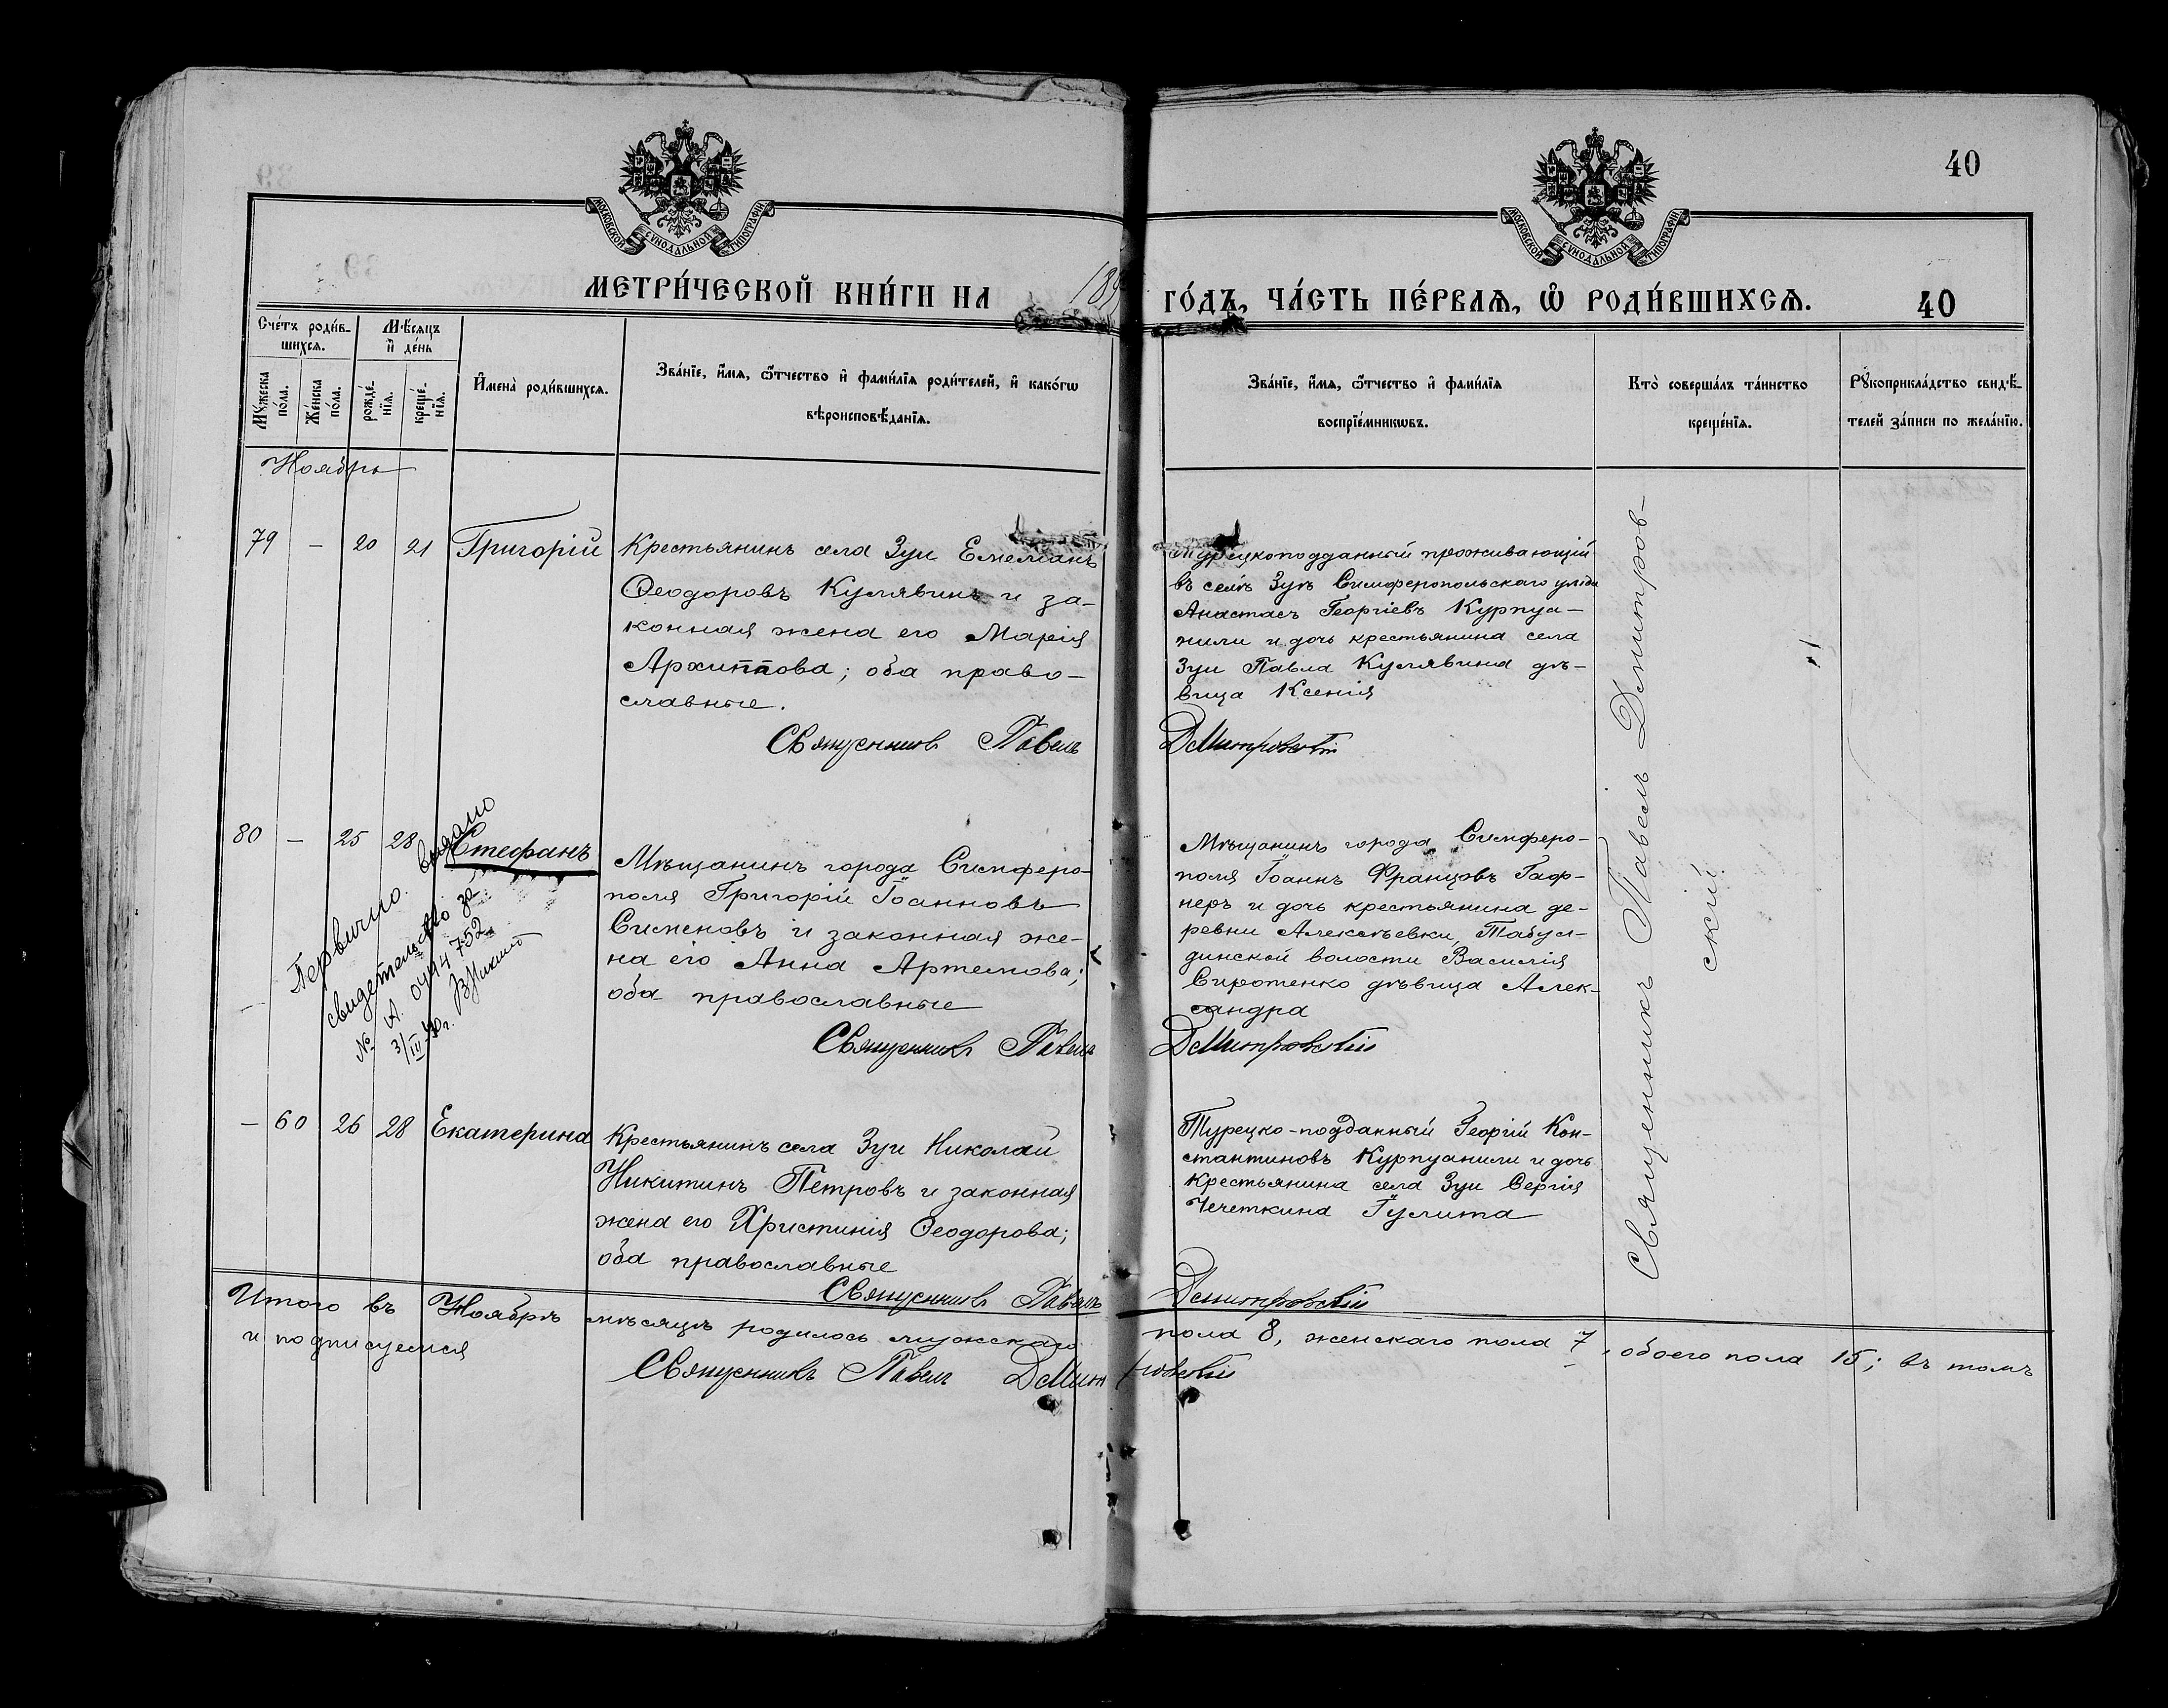 40
МОСКОВСКОЙ СУНОДАЛЬНОЙ ТИПОГРАФІИ
МОСКОВСКОЙ СУНОДАЛЬНОЙ ТИПОГРАФІИ
МЕТРИ́ЧЕСКОЙ КНИ́ГИ НА
ГО́ДЪ, ЧА́СТЬ ПЕ́РВАѦ, Ѽ РОДИ́ВШИХСѦ.
40
Сче́тъ роди́в-
шихсѧ.
Мѣ́сѧцъ
и҆ де́нь
Мꙋ́жеска
по́ла.
Же́нска
по́ла.
рожде́-
нїѧ.
креще́-
нїѧ.
И҆мена̀ роди́вшихсѧ.
Зва́нїе, и҆́мѧ, ѻ҆́тчество и҆ фамѝлїѧ роди́телей, и҆ како́гѡ
вѣроисповѣ́данїѧ.
Зва́нїе, и҆́мѧ, ѻ҆́тчество и҆ фами́лїѧ
воспрїе́мникѡвъ.
Кто̀ соверша́лъ та́инство
креще́нїѧ.
Рꙋкоприкла́дство свидѣ́-
телей за́писи по жела́нїю.
Ноябрь
79 – 20 21 Григорій
Крестьянинъ села Зуи Емеліанъ
Ѳеодоровъ Кулявинъ и за-
конная жена его Марія
Архиппова; оба право-
славные.
Турецкоподданный проживающій
въ селѣ Зуѣ Симферопольскаго уѣзда
Анастасъ Георгіевъ Курпуа-
нили и дочь крестьянина села
Зуи Павла Кулявина дѣ-
вица Ксенія
Священникъ Павелъ Дмитровскій
80 – 25 28 Стефанъ
Первично выдано
свидетельство за
№ А. 0414752
3/III
Мѣщанинъ города Симферо-
поля Григорій Іоанновъ
Сименовъ и законная же-
на его Анна Артемова;
оба православные
Мѣщанинъ города Симферо-
поля Іоаннъ Францовъ Гаф-
неръ и дочь крестьянина де-
ревни Алексѣевки, Табул-
динской волости Василія
Сиротенко дѣвица Алек-
сандра
Священникъ Павелъ Дмитровскій
– 60 26 28 Екатерина
Крестьянинъ села Зуи Николай
Никитинъ Петровъ и законная
жена его Христинія Ѳеодорова;
оба православные
Турецко-подданный Георгій Кон-
стантиновъ Курпуанили и дочь
крестьянина села Зуи Сергія
Чечеткина Іулита
Священникъ Павелъ Дмитровскій
Священникъ Павелъ Дмитров-
скій.
Итого въ Ноябрѣ мѣсяцѣ родилось мужскаго пола 8, женскаго пола 7, обоего пола 15; въ томъ
и подписуемся
Священникъ Павелъ Дмитровскій